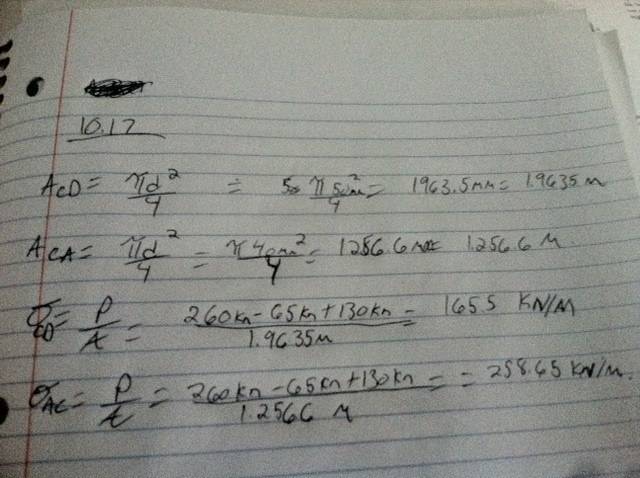 10.17
A_CD = πd²/4 = π50mm²/4 = 1963.5mm = 1.9635 m
A_CA = πd²/4 = π40mm²/4 = 1256.6 = 1.2566 M
σ_CD = P/A = 260kn - 65kn + 130kn / 1.9635m = 165.5 KN/M
σ_AC = P/A = 260kn - 65kn + 130kn / 1.2566 M = = 258.65 KN/m.